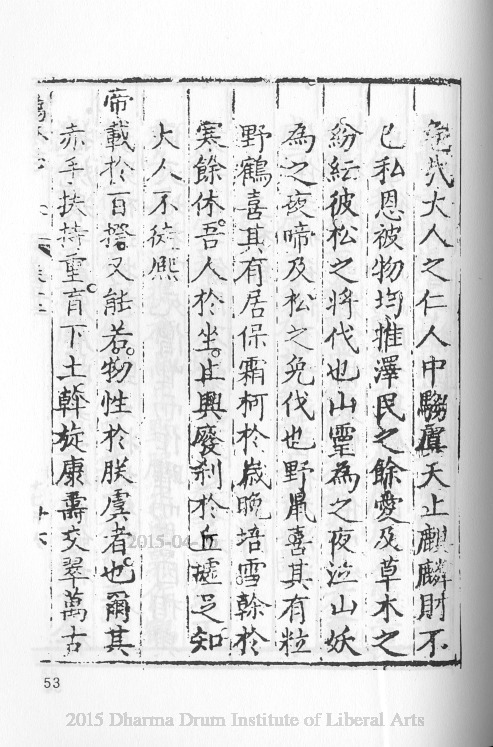 免伐大人之仁人中騶虞天上麒麟財不
已私恩被物均推澤民之餘愛及草木之
紛紜彼松之將代也山靈為之夜泣山妖
為之夜啼及松之免伐也野鼠喜其有粒
野鶴喜其有居保霜柯於歲晚培雪榦於
寒餘休吾人於坐止興廢剎於丘墟足知
大人不徒熙
帝載於百揆又能若物性於朕虞者也爾其
赤手扶持重育下土斡旋康壽交翠萬古
53
2015-04-
2015 Dharma Drum Institute of Liberal Arts